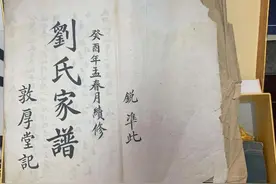 銳準此
癸酉年孟春月續修
劉氏家譜
敦厚堂記